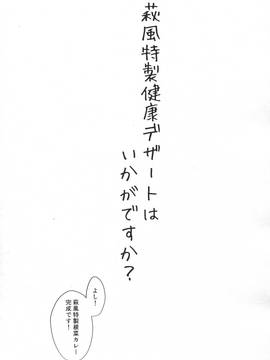 萩風特製健康デザートは
いかがですか？
よし！
萩風特製根菜カレー
完成です！